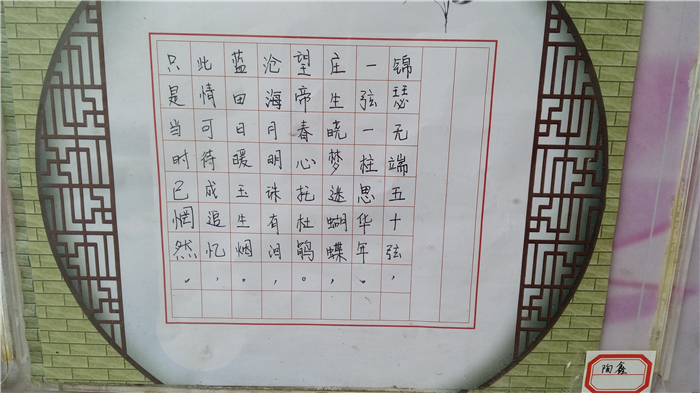 锦瑟无端五十弦，
一弦一柱思华年。
庄生晓梦迷蝴蝶，
望帝春心托杜鹃。
沧海月明珠有泪，
蓝田日暖玉生烟。
此情可待成追忆，
只是当时已惘然。
陶鑫